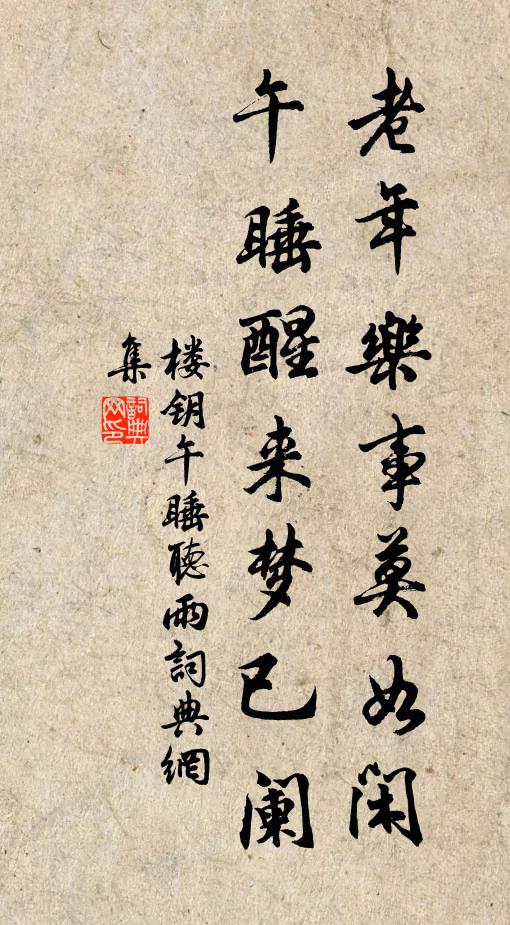 老年樂事莫如閑
午睡醒来梦已阑
楼钥午睡聽雨詞典網
集
詞典
网印